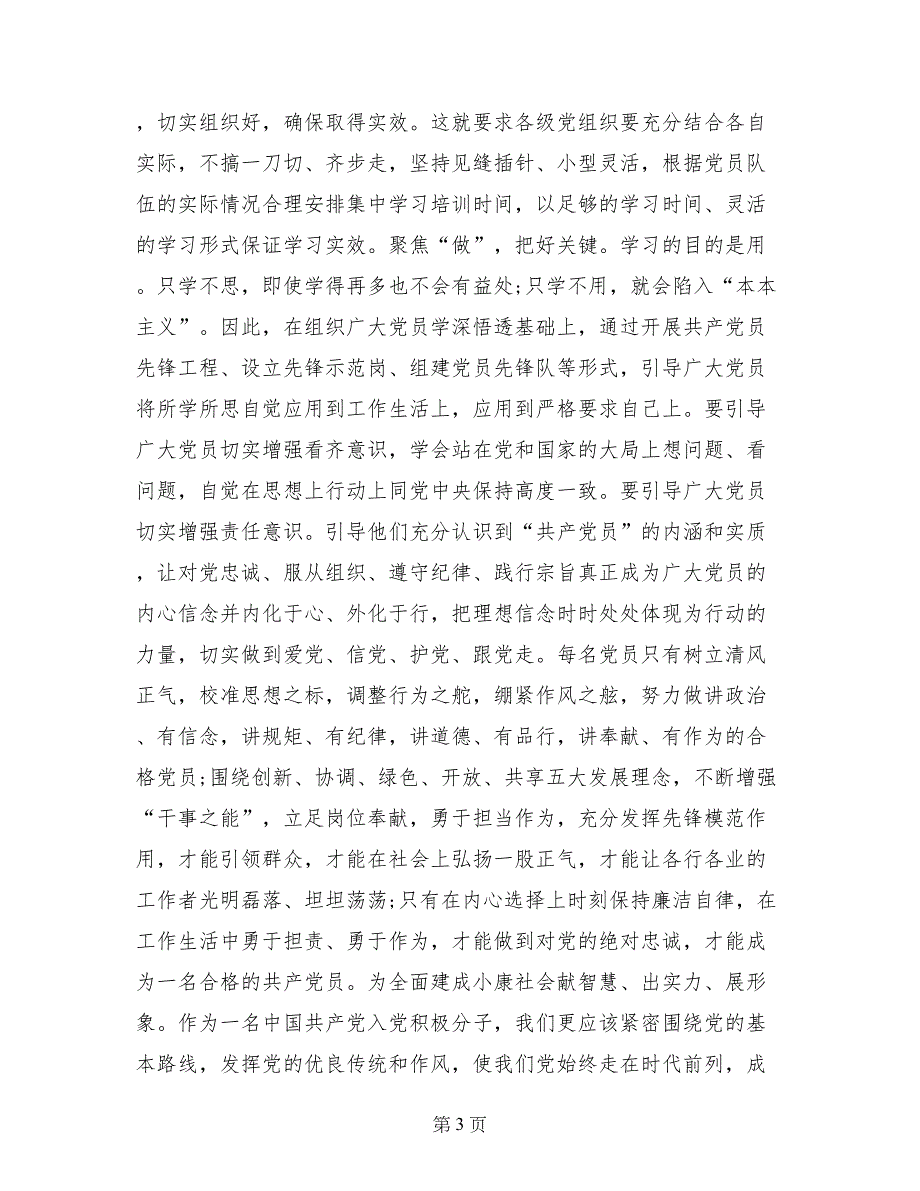 ，切实组织好，确保取得实效。这就要求各级党组织要充分结合各自
实际，不搞一刀切、齐步走，坚持见缝插针、小型灵活，根据党员队
伍的实际情况合理安排集中学习培训时间，以足够的学习时间、灵活
的学习形式保证学习实效。聚焦“做”，把好关键。学习的目的是用
。只学不思，即使学得再多也不会有益处;只学不用，就会陷入“本本
主义”。因此，在组织广大党员学深悟透基础上，通过开展共产党员
先锋工程、设立先锋示范岗、组建党员先锋队等形式，引导广大党员
将所学所思自觉应用到工作生活上，应用到严格要求自己上。要引导
广大党员切实增强看齐意识，学会站在党和国家的大局上想问题、看
问题，自觉在思想上行动上同党中央保持高度一致。要引导广大党员
切实增强责任意识。引导他们充分认识到“共产党员”的内涵和实质
，让对党忠诚、服从组织、遵守纪律、践行宗旨真正成为广大党员的
内心信念并内化于心、外化于行，把理想信念时时处处体现为行动的
力量，切实做到爱党、信党、护党、跟党走。每名党员只有树立清风
正气，校准思想之标，调整行为之舵，绷紧作风之舷，努力做讲政治
、有信念，讲规矩、有纪律，讲道德、有品行，讲奉献、有作为的合
格党员;围绕创新、协调、绿色、开放、共享五大发展理念，不断增强
“干事之能”，立足岗位奉献，勇于担当作为，充分发挥先锋模范作
用，才能引领群众，才能在社会上弘扬一股正气，才能让各行各业的
工作者光明磊落、坦坦荡荡;只有在内心选择上时刻保持廉洁自律，在
工作生活中勇于担责、勇于作为，才能做到对党的绝对忠诚，才能成
为一名合格的共产党员。为全面建成小康社会献智慧、出实力、展形
象。作为一名中国共产党入党积极分子，我们更应该紧密围绕党的基
本路线，发挥党的优良传统和作风，使我们党始终走在时代前列，成
第 3 页